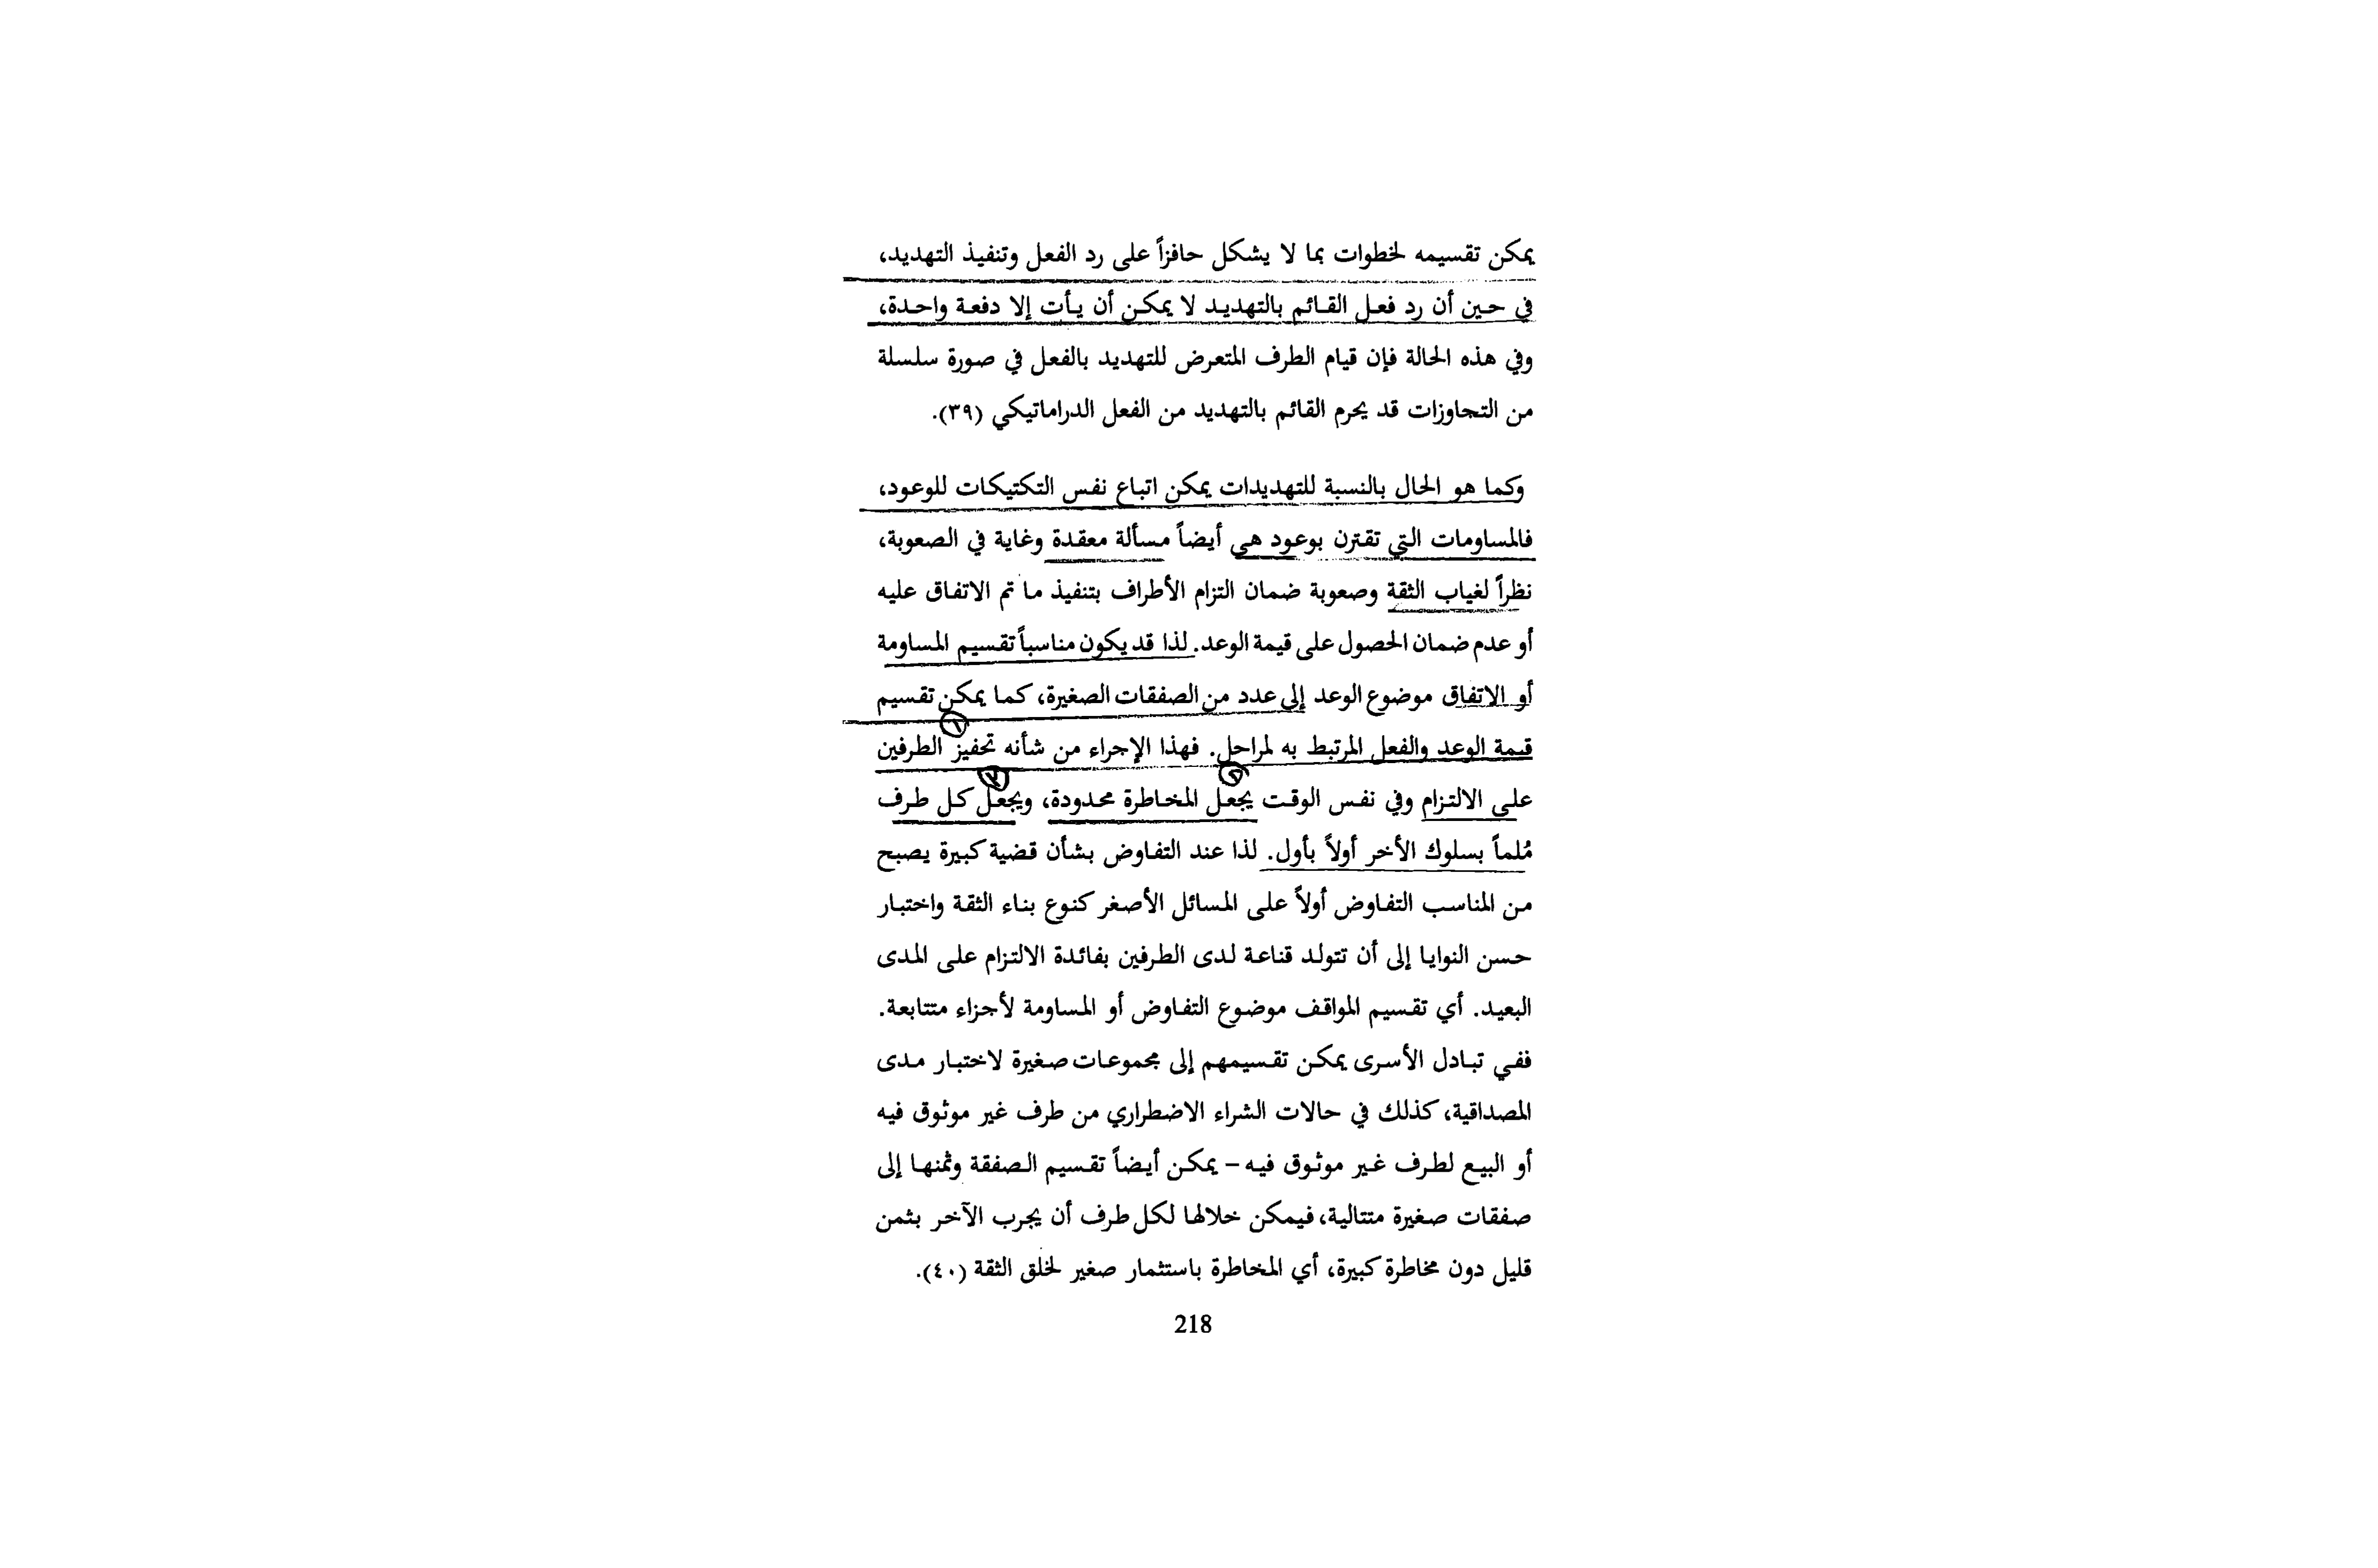 يمكن تقسيمه لخطوات بما لا يشكل حافزاً على رد الفعل وتنفيذ التهديد،
في حين أن رد فعل القائم بالتهديد لا يمكن أن يأت إلا دفعة واحدة،
وفي هذه الحالة فإن قيام الطرف المتعرض للتهديد بالفعل في صورة سلسلة
من التجاوزات قد يحرم القائم بالتهديد من الفعل الدراماتيكي (٣٩).
وكما هو الحال بالنسبة للتهديدات يمكن اتباع نفس التكتيكات للوعود،
فالمساومات التي تقترن بوعود هي أيضاً مسألة معقدة وغاية في الصعوبة،
نظراً لغياب الثقة وصعوبة ضمان التزام الأطراف بتنفيذ ما تم الاتفاق عليه
أو عدم ضمان الحصول على قيمة الوعد. لذا قد يكون مناسباً تقسيم المساومة
أو الاتفاق موضوع الوعد إلى عدد من الصفقات الصغيرة، كما يمكن تقسيم
قيمة الوعد والفعل المرتبط به لمراحل. فهذا الإجراء من شأنه تحفيز الطرفين
على الالتزام وفي نفس الوقت يجعل المخاطرة محدودة، ويجعل كل طرف
مُلماً بسلوك الأخر أولاً بأول. لذا عند التفاوض بشأن قضية كبيرة يصبح
من المناسب التفاوض أولاً على المسائل الأصغر كنوع بناء الثقة واختبار
حسن النوايا إلى أن تتولد قناعة لدى الطرفين بفائدة الالتزام على المدى
البعيد. أي تقسيم المواقف موضوع التفاوض أو المساومة لأجزاء متتابعة.
ففي تبادل الأسرى يمكن تقسيمهم إلى مجموعات صغيرة لاختبار مدى
المصداقية، كذلك في حالات الشراء الاضطراري من طرف غير موثوق فيه
أو البيع لطرف غير موثوق فيه – يمكن أيضاً تقسيم الصفقة وثمنها إلى
صفقات صغيرة متتالية، فيمكن خلالها لكل طرف أن يجرب الآخر بثمن
قليل دون مخاطرة كبيرة، أي المخاطرة باستثمار صغير لخلق الثقة (٤٠).
218